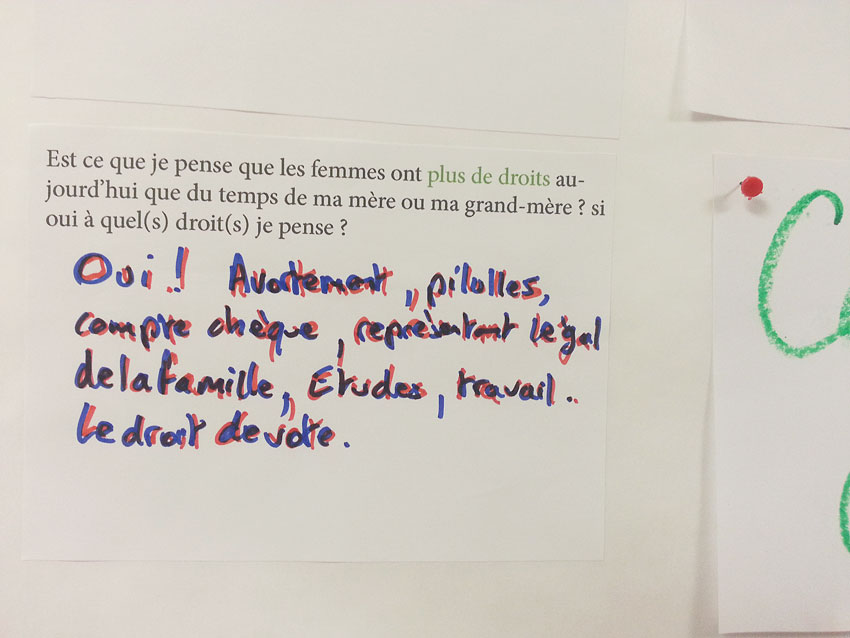 Est ce que je pense que les femmes ont plus de droits au-
jourd'hui que du temps de ma mère ou ma grand-mère ? si
oui à quel(s) droit(s) je pense ?
Oui ! Avortement, pilulles,
compte chèque, représentant légal
de la famille, Etudes, travail..
Le droit de vote.